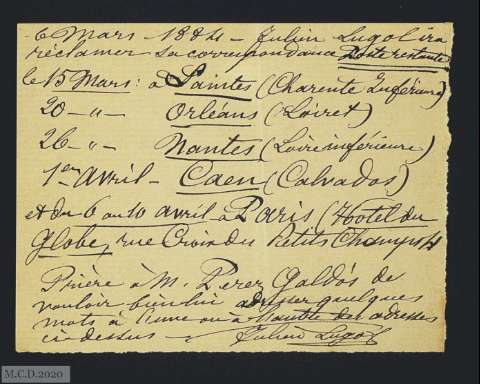 6 Mars 1884 - Julien Lugol ira
réclamer sa correspondance Poste restante
le 15 Mars : à Saintes (Charente Inférieure)
20 -〃- Orléans (Loiret)
26 -〃- Nantes (Loire inférieure)
1er avril - Caen (Calvados)
et du 6 au 10 avril à Paris (Hotel du
Globe, rue Croix des Petits Champs 4
Prière à M. Perez Galdós de
vouloir bien lui adresser quelques
mots à l'une ou à l'autre des adresses
ci-dessus - Julien Lugol
M.C.D.2020